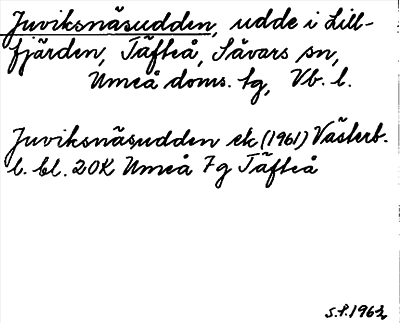 Juviksnäsudden, udde i Lill-
fjärden, Täfteå, Sävars sn,
Umeå doms. tg, Vb. l.
Juviksnäsudden ek (1961) Västerb.
l. bl. 20K Umeå 7g Täfteå
S.P. 1962